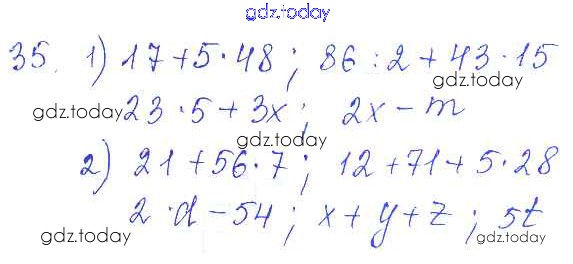 gdz.today
35. 1) 17+5·48; 86:2+43·15
gdz.today 23·5+3x; 2x-m
gdz.today
gdz.today
2) 21+56·7; 12+71+5·28
2·d-54; x+y+z; 5t
gdz.today gdz.today